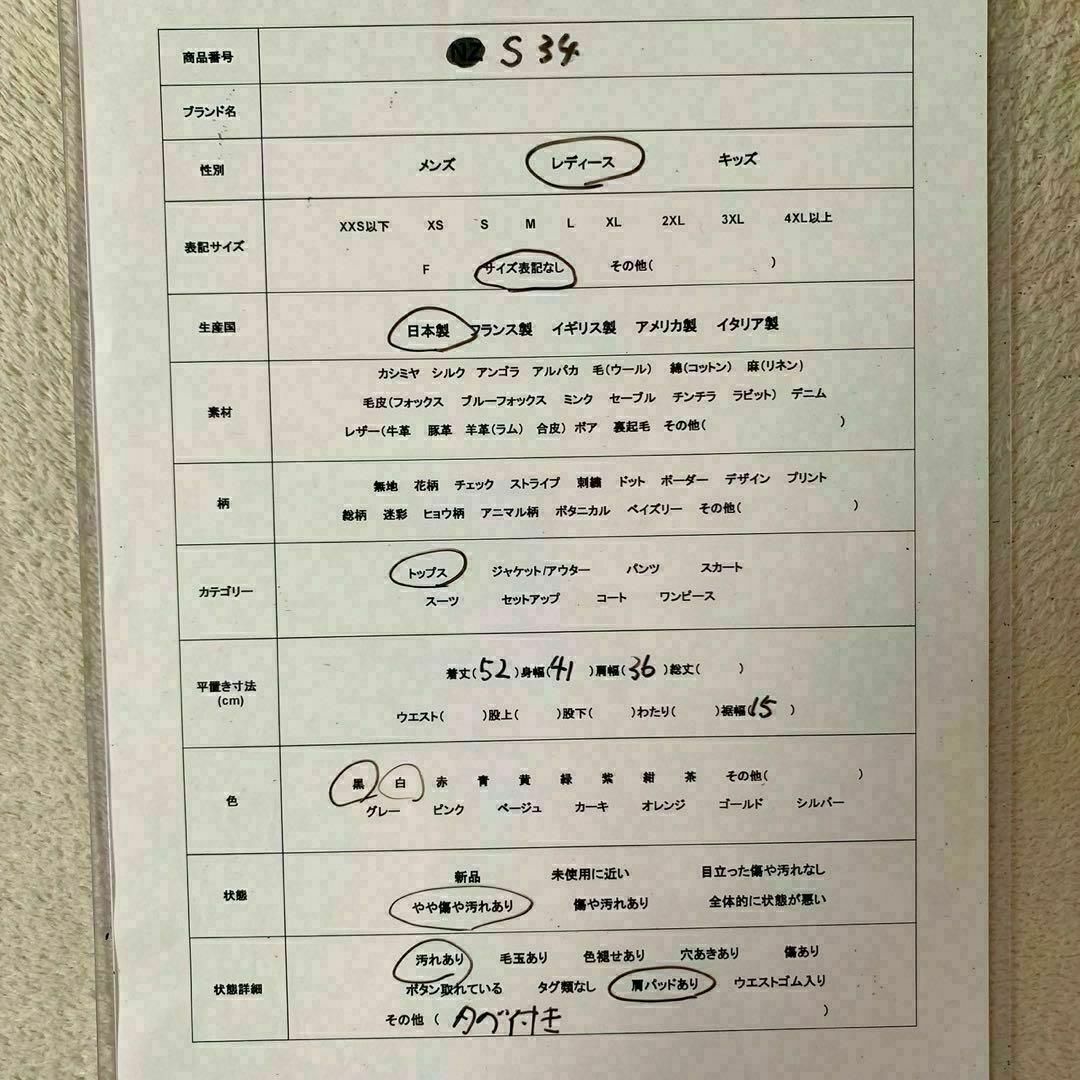 商品番号 NZ S 34
ブランド名
性別 メンズ レディース キッズ
表記サイズ
XXS以下 XS S M L XL 2XL 3XL 4XL以上
F サイズ表記なし その他( )
生産国 日本製 フランス製 イギリス製 アメリカ製 イタリア製
素材
カシミヤ シルク アンゴラ アルパカ 毛(ウール) 綿(コットン) 麻(リネン)
毛皮(フォックス ブルーフォックス ミンク セーブル チンチラ ラビット) デニム
レザー(牛革 豚革 羊革(ラム) 合皮) ボア 裏起毛 その他( )
柄
無地 花柄 チェック ストライプ 刺繍 ドット ボーダー デザイン プリント
総柄 迷彩 ヒョウ柄 アニマル柄 ボタニカル ペイズリー その他( )
カテゴリー
トップス ジャケット/アウター パンツ スカート
スーツ セットアップ コート ワンピース
平置き寸法
(cm)
着丈(52)身幅(41)肩幅(36)総丈( )
ウエスト( )股上( )股下( )わたり( )裾幅(15)
色
黒 白 赤 青 黄 緑 紫 紺 茶 その他( )
グレー ピンク ベージュ カーキ オレンジ ゴールド シルバー
状態
新品 未使用に近い 目立った傷や汚れなし
やや傷や汚れあり 傷や汚れあり 全体的に状態が悪い
状態詳細
汚れあり 毛玉あり 色褪せあり 穴あきあり 傷あり
ボタン取れている タグ類なし 肩パッドあり ウエストゴム入り
その他 ( タグ付き )